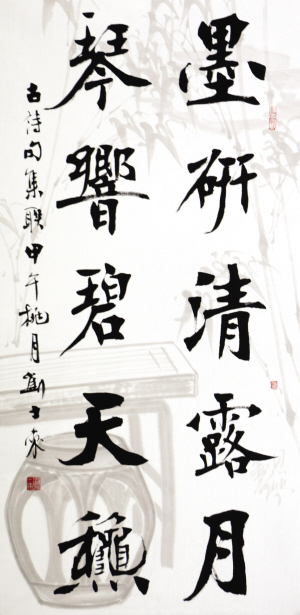 墨研清露月
琴響碧天龝
古詩句集聯甲午桃月劉士來